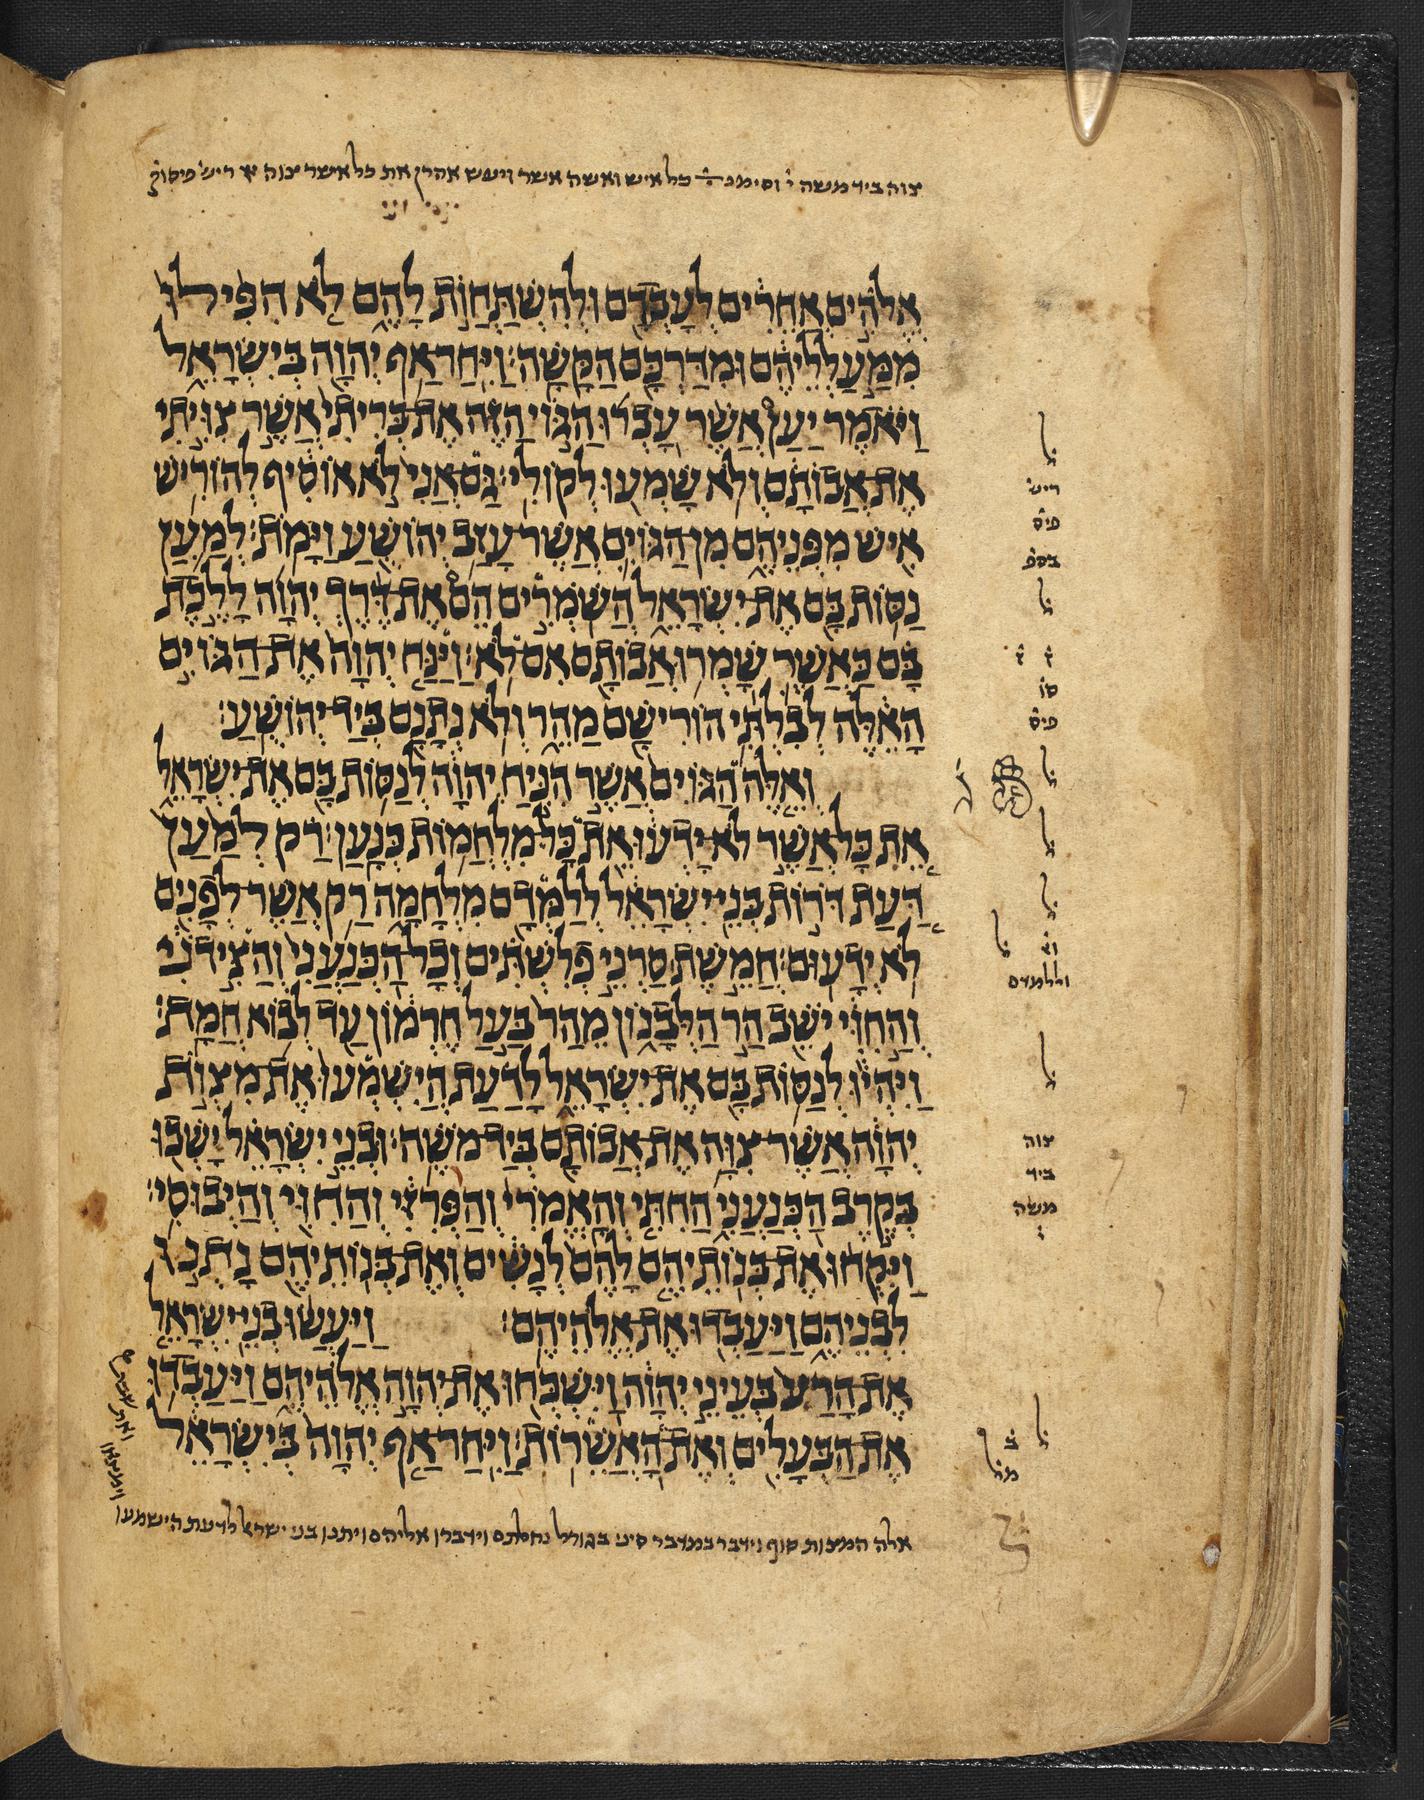 צוה ביד משה י וסימנ כל איש ואשה אשר ויעש אהרן את כל אשר צוה יי ריש פיסוק
אֱלֹהִים אֲחֵרִים לְעָבְדָם וּלְהִשְׁתַּחֲוֺת לָהֶם לֹא הִפִּילוּ
מִמַּעַלְלֵיהֶם וּמִדַּרְכָּם הַקָּשָׁה׃ וַיִּחַר אַף יְהוָה בְּיִשְׂרָאֵל
וַיֹּאמֶר יַעַן אֲשֶׁר עָבְרוּ הַגּוֹי הַזֶּה אֶת בְּרִיתִי אֲשֶׁר צִוִּיתִי
אֶת אֲבוֹתָם וְלֹא שָׁמְעוּ לְקוֹלִי׃ גַּם אֲנִי לֹא אוֹסִיף לְהוֹרִישׁ
אִישׁ מִפְּנֵיהֶם מִן הַגּוֹיִם אֲשֶׁר עָזַב יְהוֹשֻׁעַ וַיָּמֹת׃ לְמַעַן
נַסּוֹת בָּם אֶת יִשְׂרָאֵל הֲשֹׁמְרִים הֵם אֶת דֶּרֶךְ יְהוָה לָלֶכֶת
בָּם כַּאֲשֶׁר שָׁמְרוּ אֲבוֹתָם אִם לֹא׃ וַיַּנַּח יְהוָה אֶת הַגּוֹיִם
הָאֵלֶּה לְבִלְתִּי הוֹרִישָׁם מַהֵר וְלֹא נְתָנָם בְּיַד יְהוֹשֻׁעַ׃
וְאֵלֶּה הַגּוֹיִם אֲשֶׁר הִנִּיחַ יְהוָה לְנַסּוֹת בָּם אֶת יִשְׂרָאֵל
אֵת כָּל אֲשֶׁר לֹא יָדְעוּ אֵת כָּל מִלְחֲמוֹת כְּנָעַן׃ רַק לְמַעַן
דַּעַת דֹּרוֹת בְּנֵי יִשְׂרָאֵל לְלַמְּדָם מִלְחָמָה רַק אֲשֶׁר לְפָנִים
לֹא יְדָעוּם׃ חֲמֵשֶׁת סַרְנֵי פְלִשְׁתִּים וְכָל הַכְּנַעֲנִי וְהַצִּידֹנִי
וְהַחִוִּי יֹשֵׁב הַר הַלְּבָנוֹן מֵהַר בַּעַל חֶרְמוֹן עַד לְבוֹא חֲמָת׃
וַיִּהְיוּ לְנַסּוֹת בָּם אֶת יִשְׂרָאֵל לָדַעַת הֲיִשְׁמְעוּ אֶת מִצְוֺת
יְהוָה אֲשֶׁר צִוָּה אֶת אֲבוֹתָם בְּיַד מֹשֶׁה׃ וּבְנֵי יִשְׂרָאֵל יָשְׁבוּ
בְּקֶרֶב הַכְּנַעֲנִי הַחִתִּי וְהָאֱמֹרִי וְהַפְּרִזִּי וְהַחִוִּי וְהַיְבוּסִי׃
וַיִּקְחוּ אֶת בְּנוֹתֵיהֶם לָהֶם לְנָשִׁים וְאֶת בְּנוֹתֵיהֶם נָתְנוּ
לִבְנֵיהֶם וַיַּעַבְדוּ אֶת אֱלֹהֵיהֶם׃ וַיַּעֲשׂוּ בְנֵי יִשְׂרָאֵל
אֶת הָרַע בְּעֵינֵי יְהוָה וַיִּשְׁכְּחוּ אֶת יְהוָה אֱלֹהֵיהֶם וַיַּעַבְדוּ
אֶת הַבְּעָלִים וְאֶת הָאֲשֵׁרוֹת׃ וַיִּחַר אַף יְהוָה בְּיִשְׂרָאֵל
אלה המצות סוף וידבר במדבר סיני בגורל נחלתם וידברו אליהם ויתנו בני ישראל לדעת הישמעו
ל
ריש
פיס
בספ
ל
ס
פיס
ל
ל
ל
ל
וללמדם
ל
צוה
ביד
משה
י
ל
ב